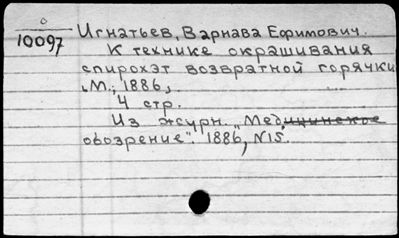 o
10097
Игнатьев, Варнава Ефимович.
К технике окрашивания
спирохэт возвратной горячки
М., 1886,
4 стр.
Из журн. "Медицинское
обозрение". 1886, N15.